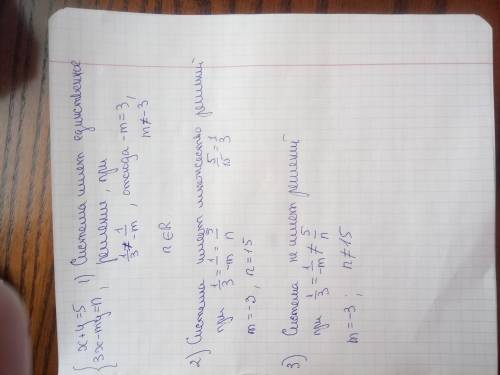 { x+y=5
3x-my=n , 1) Система имеет единственное
решение, при
1/3 ≠ 1/-m , отсюда -m=3,
m≠-3
n∈R
2) Система имеет множество решений
при 1/3 = 1/-m = 5/n 5/15 = 1/3
m=-3, n=15
3) Система не имеет решений
при 1/3 = 1/-m ≠ 5/n
m=-3; n≠15